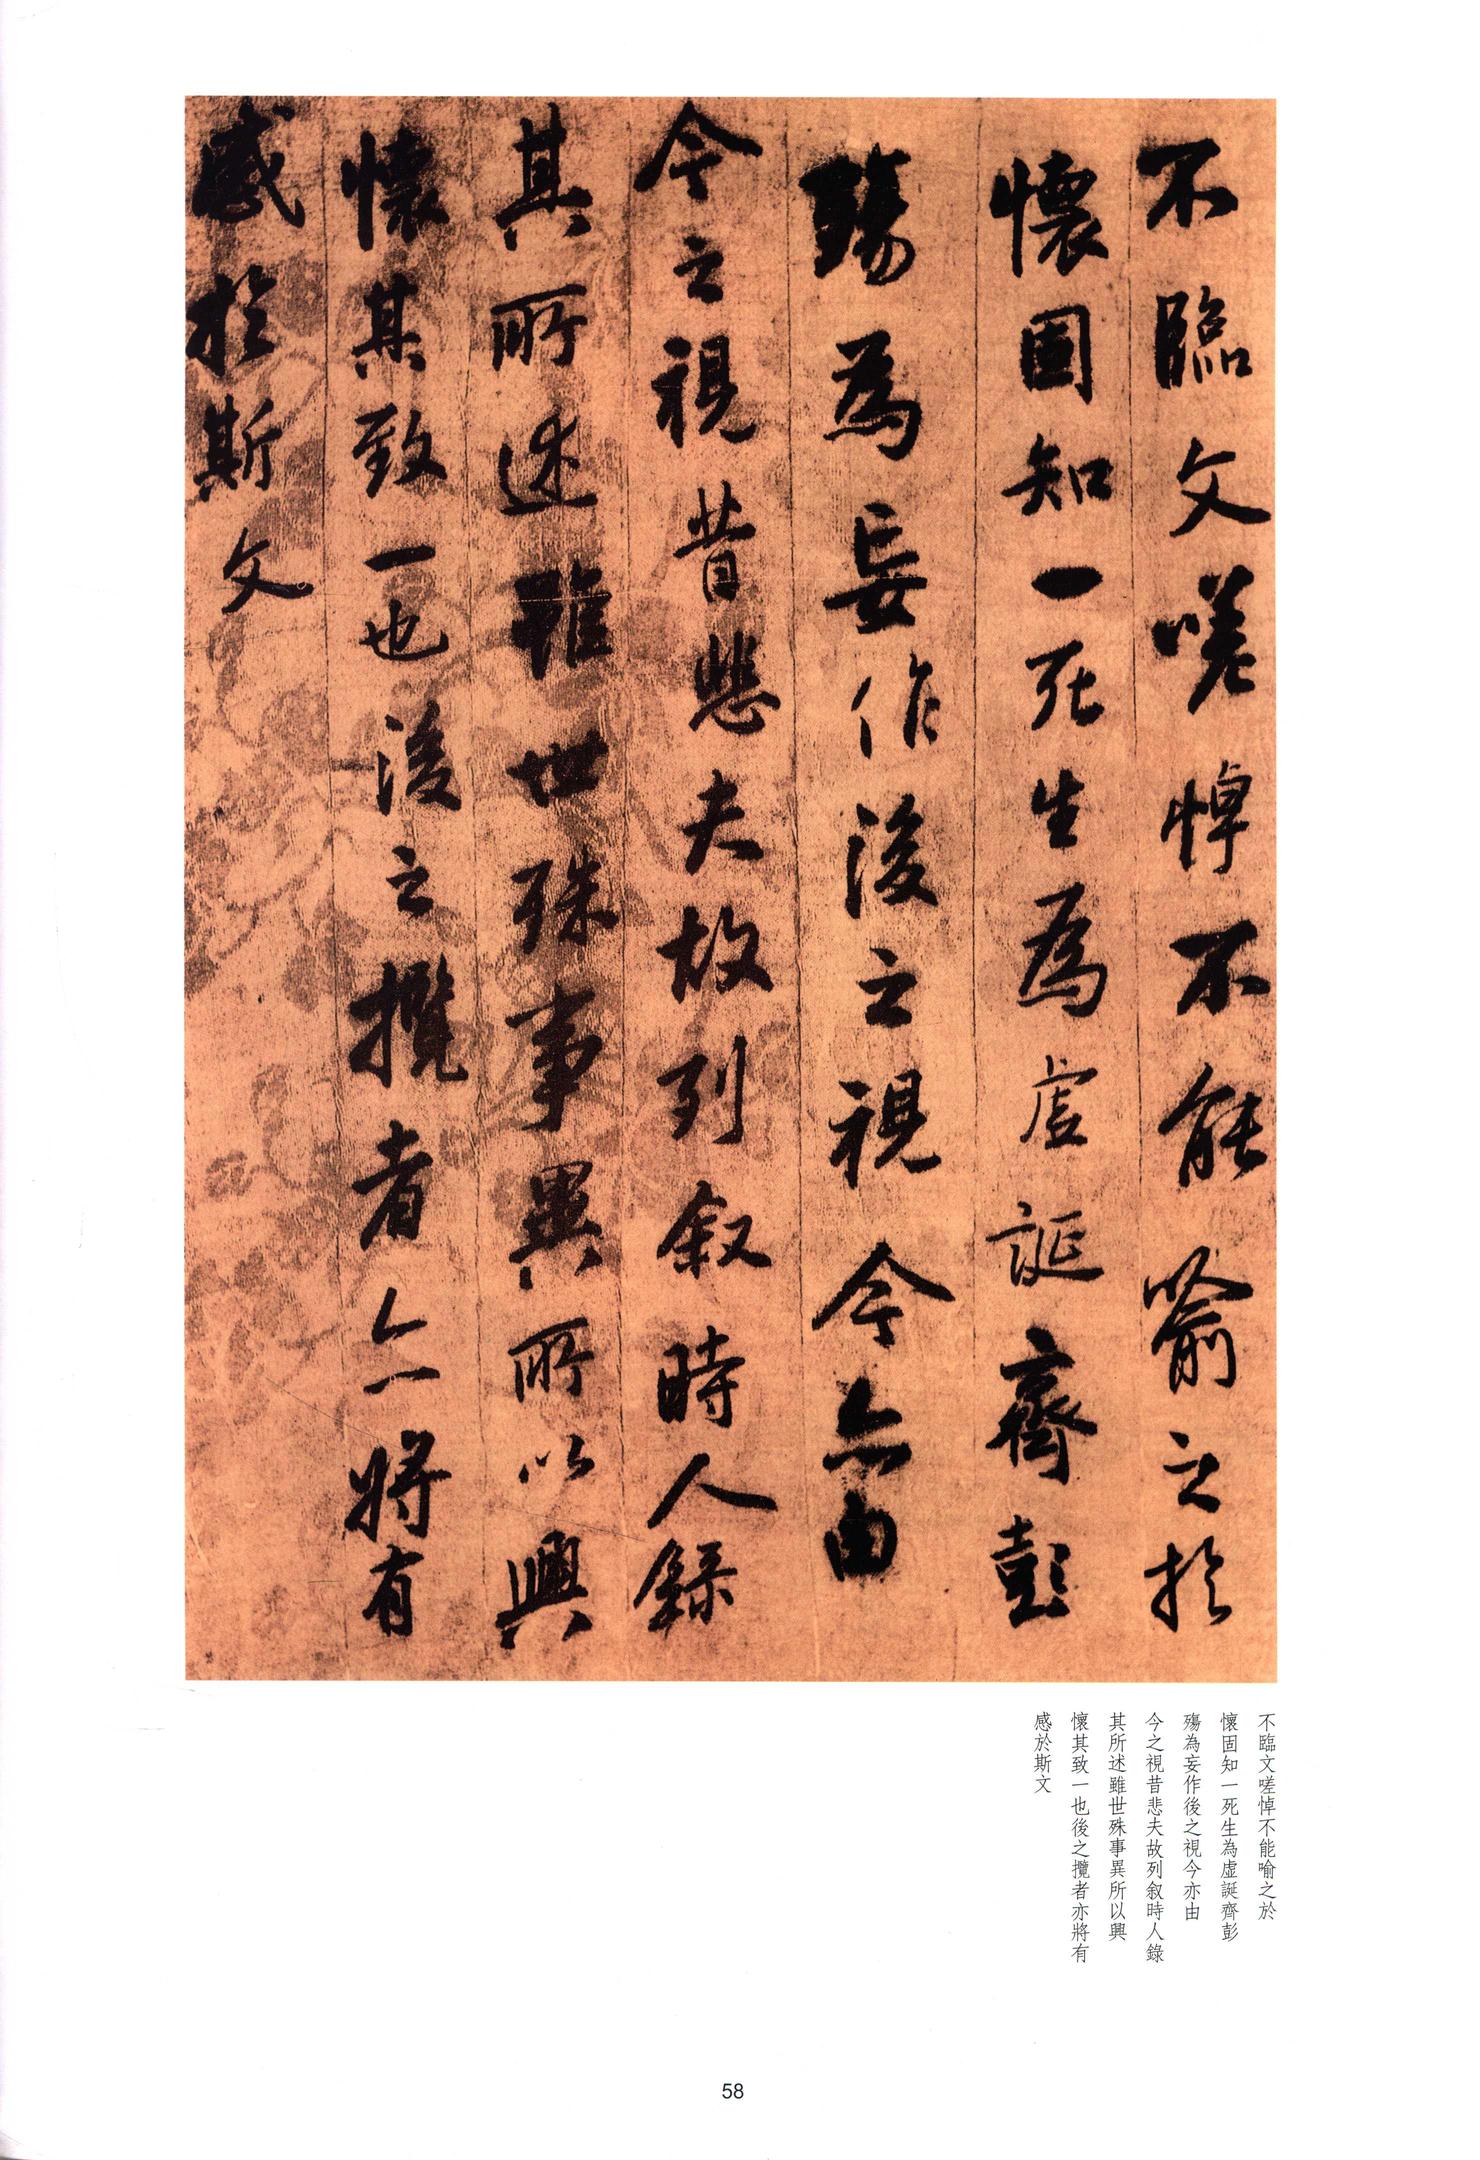 不臨文嗟悼不能喻之於
懷固知一死生為虛誕齊彭
殤為妄作後之視今亦由
今之視昔悲夫故列叙時人錄
其所述雖世殊事異所以興
懷其致一也後之攬者亦將有
感於斯文
不臨文嗟悼不能喻之於
懷固知一死生為虛誕齊彭
殤為妄作後之視今亦由
今之視昔悲夫故列叙時人錄
其所述雖世殊事異所以興
懷其致一也後之攬者亦將有
感於斯文
58